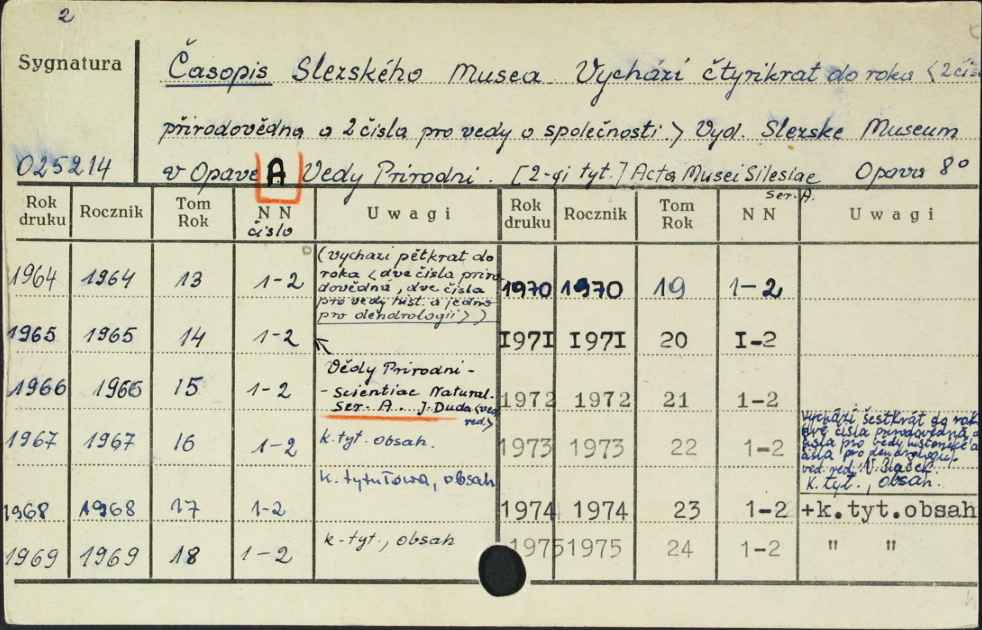 2
Sygnatura
Časopis Slezského Musea Vychází čtyrikrat do roka <2 čís
přírodovědna a 2 čísla pro vedy o společnosti.> Vyd. Slezske Museum
025214
v Opave A Vedy Prirodni. [2-gi tyt.] Acta Musei Silesiae Opava 8°
Ser. A.
Rok druku Rocznik Tom Rok N N číslo Uwagi Rok druku Rocznik Tom Rok N N Uwagi
(Vychazi pětkrat do
roka <dve čísla príro
dovědná, dve čísla
pro vedy hist. a jedno
pro dendrologii>)
1964 1964 13 1-2 1970 1970 19 1-2
1965 1965 14 1-2 1971 1971 20 1-2
Vědy Prirodni -
- scientiae Natural.
Ser. A. J. Duda <ved
red.>
1966 1966 15 1-2 1972 1972 21 1-2
Vychází šestkrát do rok
dvě čísla prirodovědná
čísla pro vědy historické a
čísla pro dendrologii
ved. red.
k. tyt., obsah.
1967 1967 16 1-2 k. tyt. obsah. 1973 1973 22 1-2
k. tytułowa, obsah
1968 1968 17 1-2 1974 1974 23 1-2 +k.tyt.obsah
1969 1969 18 1-2 k-tyt., obsah 1975 1975 24 1-2 " "